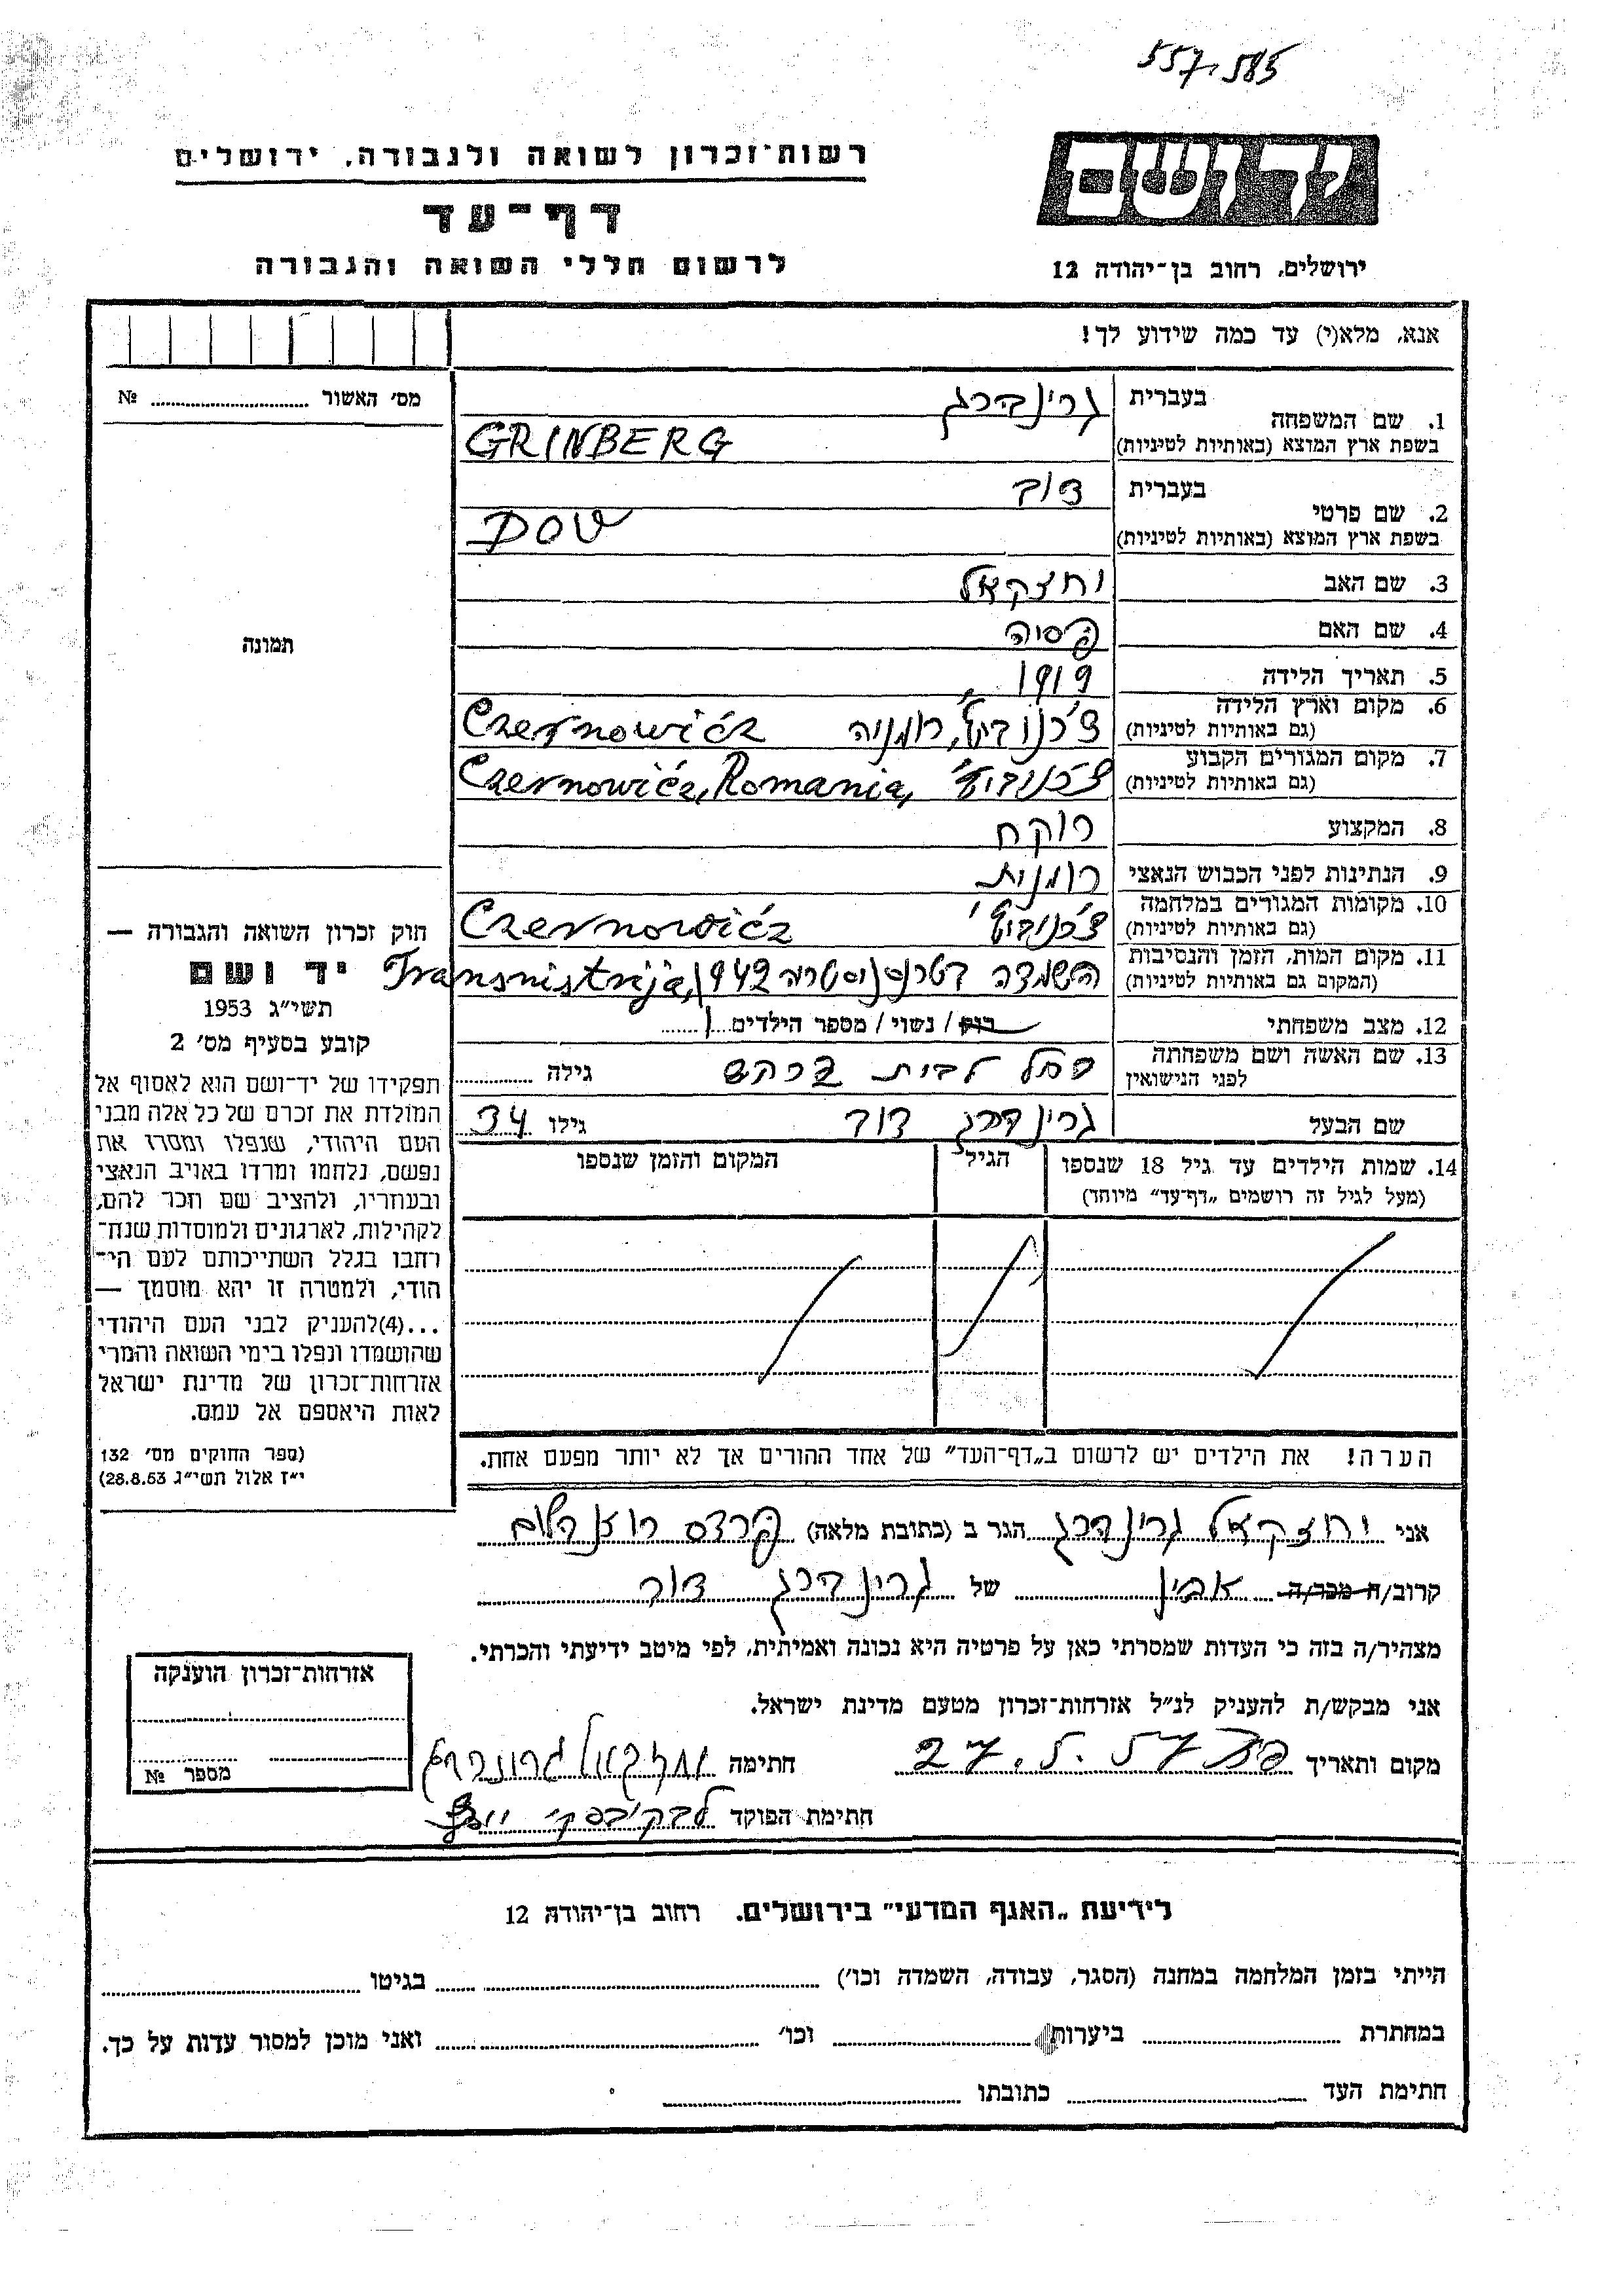 557,585
יד ושם
רשות־זכרון לשואה ולגבורה, ירושלים
דף־עד
לרשום חללי השואה והגבורה
ירושלים, רחוב בן־יהודה 12
אנא, מלא(י) עד כמה שידוע לך!
מס׳ האשור № 
1. שם המשפחה
בעברית גרינברג
בשפת ארץ המוצא (באותיות לטיניות) GRINBERG
2. שם פרטי
בעברית דוב
בשפת ארץ המוצא (באותיות לטיניות) DOV
3. שם האב יחזקאל
4. שם האם פסיה
5. תאריך הלידה 1919
6. מקום וארץ הלידה
(גם באותיות לטיניות) צ׳רנוביץ, רומניה Czernowićz
7. מקום המגורים הקבוע
(גם באותיות לטיניות) צ׳רנוביץ Czernowićz, Romania,
8. המקצוע רוקח
9. הנתינות לפני הכבוש הנאצי רומנית
10. מקומות המגורים במלחמה
(גם באותיות לטיניות) צ׳רנוביץ Czernowićz
11. מקום המות, הזמן והנסיבות
(המקום גם באותיות לטיניות) השמדה בטרנסניסטריה 1942 Transnistrija,
12. מצב משפחתי רוק / נשוי / מספר הילדים 1
13. שם האשה ושם משפחתה
לפני הנישואין לבית גילה
שם הבעל גרינברג דוב גילו 34
14. שמות הילדים עד גיל 18 שנספו
(מעל לגיל זה רושמים „דף־עד” מיוחד)
הגיל
המקום והזמן שנספו
הערה! את הילדים יש לרשום ב„דף־העד” של אחד ההורים אך לא יותר מפעם אחת.
תמונה
חוק זכרון השואה והגבורה —
יד ושם
תשי״ג 1953
קובע בסעיף מס׳ 2
תפקידו של יד־ושם הוא לאסוף אל
המולדת את זכרם של כל אלה מבני
העם היהודי, שנפלו ומסרו את
נפשם, נלחמו ומרדו באויב הנאצי
ובעוזריו, ולהציב שם וזכר להם,
לקהילות, לארגונים ולמוסדות שנח־
רחבו בגלל השתייכותם לעם הי־
הודי, ולמטרה זו יהא מוסמך —
...(4)להעניק לבני העם היהודי
שהושמדו ונפלו בימי השואה והמרי
אזרחות־זכרון של מדינת ישראל
לאות היאספם אל עמם.
(ספר החוקים מס׳ 132
י״ז אלול תשי״ג 28.8.53)
אני יחזקאל גרינברג הגר ב (כתובת מלאה) פרדס רוזנבלום
קרוב/ה מכר/ה של גרינברג דוב
מצהיר/ה בזה כי העדות שמסרתי כאן על פרטיה היא נכונה ואמיתית, לפי מיטב ידיעתי והכרתי.
אני מבקש/ת להעניק לנ״ל אזרחות־זכרון מטעם מדינת ישראל.
מקום ותאריך 27.5.57 חתימה יחזקאל גרינברג
חתימת הפוקד
אזרחות־זכרון הוענקה
מספר №
לידיעת „האגף המדעי” בירושלים. רחוב בן־יהודה 12
הייתי בזמן המלחמה במחנה (הסגר, עבודה, השמדה וכו׳) בגיטו
במחתרת ביערות וכו׳ ואני מוכן למסור עדות על כך.
חתימת העד כתובתו